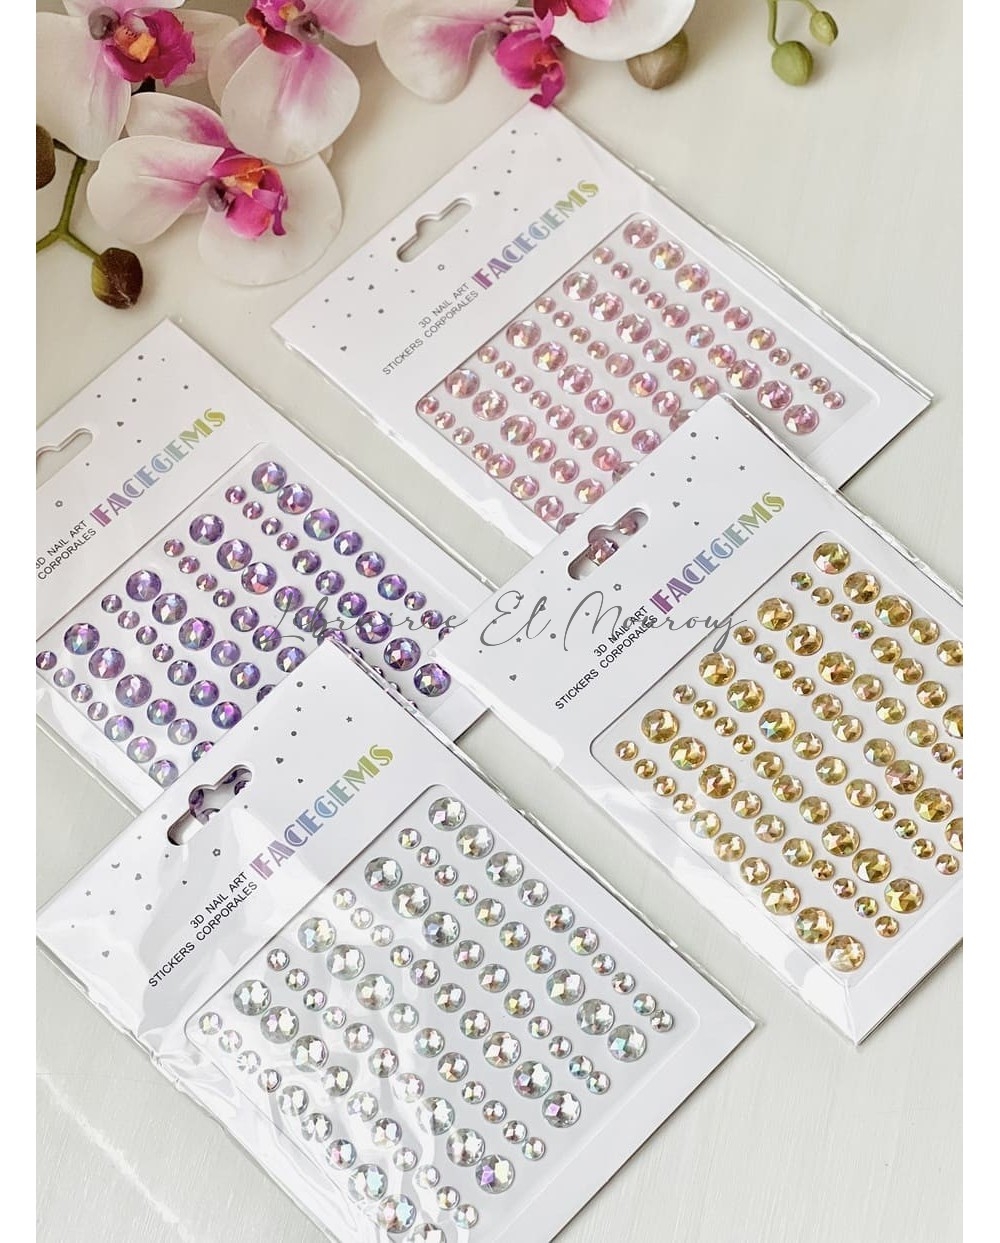 FACEGEMS
3D NAIL ART
STICKERS CORPORALES
FACEGEMS
3D NAIL ART
CORPORALES
FACEGEMS
3D NAIL ART
STICKERS CORPORALES
Librairie El Mourouj
FACEGEMS
3D NAIL ART
STICKERS CORPORALES